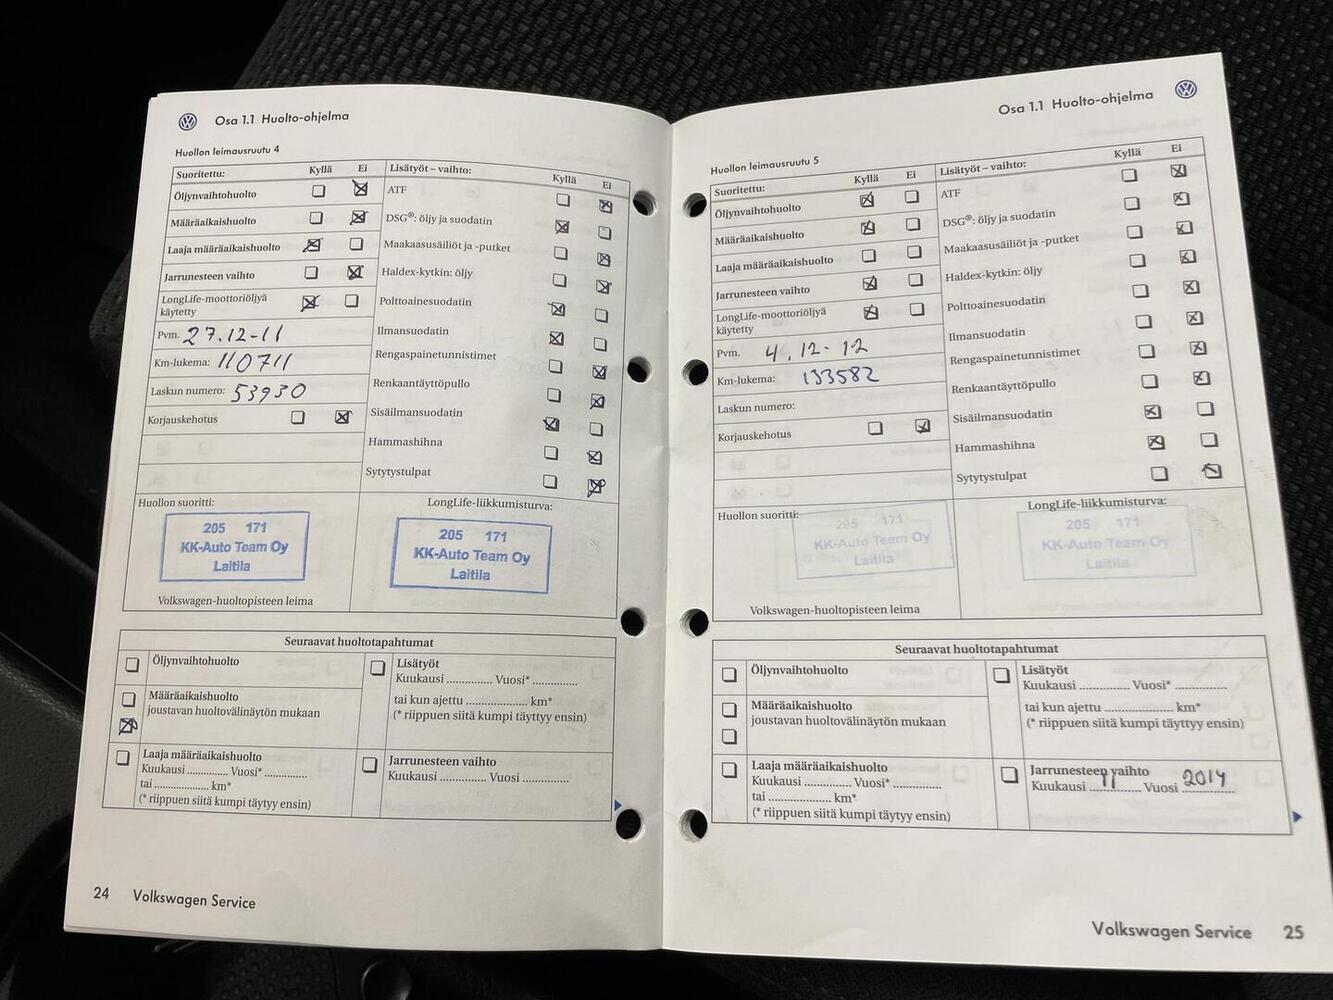 Osa 1.1 Huolto-ohjelma
Huollon leimausruutu 4
Suoritettu: Kyllä Ei
Öljynvaihtohuolto
Määräaikaishuolto
Laaja määräaikaishuolto
Jarrunesteen vaihto
LongLife-moottoriöljyä
käytetty
Pvm. 27.12-11
Km-lukema: 110711
Laskun numero: 53930
Korjauskehotus
Lisätyöt – vaihto: Kyllä Ei
ATF
DSG®: öljy ja suodatin
Maakaasusäiliöt ja -putket
Haldex-kytkin: öljy
Polttoainesuodatin
Ilmansuodatin
Rengaspainetunnistimet
Renkaantäyttöpullo
Sisäilmansuodatin
Hammashihna
Sytytystulpat
Huollon suoritti:
205 171
KK-Auto Team Oy
Laitila
Volkswagen-huoltopisteen leima
LongLife-liikkumisturva:
205 171
KK-Auto Team Oy
Laitila
Seuraavat huoltotapahtumat
Öljynvaihtohuolto
Määräaikaishuolto
joustavan huoltovälinäytön mukaan
Laaja määräaikaishuolto
Kuukausi .............. Vuosi* ..............
tai .................... km*
(* riippuen siitä kumpi täytyy ensin)
Lisätyöt
Kuukausi .............. Vuosi* ..............
tai kun ajettu .................... km*
(* riippuen siitä kumpi täyttyy ensin)
Jarrunesteen vaihto
Kuukausi .............. Vuosi ..............
24 Volkswagen Service
Osa 1.1 Huolto-ohjelma
Huollon leimausruutu 5
Suoritettu: Kyllä Ei
Öljynvaihtohuolto
Määräaikaishuolto
Laaja määräaikaishuolto
Jarrunesteen vaihto
LongLife-moottoriöljyä
käytetty
Pvm. 4.12-12
Km-lukema: 133582
Laskun numero:
Korjauskehotus
Lisätyöt – vaihto: Kyllä Ei
ATF
DSG®: öljy ja suodatin
Maakaasusäiliöt ja -putket
Haldex-kytkin: öljy
Polttoainesuodatin
Ilmansuodatin
Rengaspainetunnistimet
Renkaantäyttöpullo
Sisäilmansuodatin
Hammashihna
Sytytystulpat
Huollon suoritti:
205 171
KK-Auto Team Oy
Laitila
Volkswagen-huoltopisteen leima
LongLife-liikkumisturva:
205 171
KK-Auto Team Oy
Laitila
Seuraavat huoltotapahtumat
Öljynvaihtohuolto
Määräaikaishuolto
joustavan huoltovälinäytön mukaan
Laaja määräaikaishuolto
Kuukausi .............. Vuosi* ..............
tai .................... km*
(* riippuen siitä kumpi täytyy ensin)
Lisätyöt
Kuukausi .............. Vuosi* ..............
tai kun ajettu .................... km*
(* riippuen siitä kumpi täyttyy ensin)
Jarrunesteen vaihto
Kuukausi 11 Vuosi 2014
Volkswagen Service 25